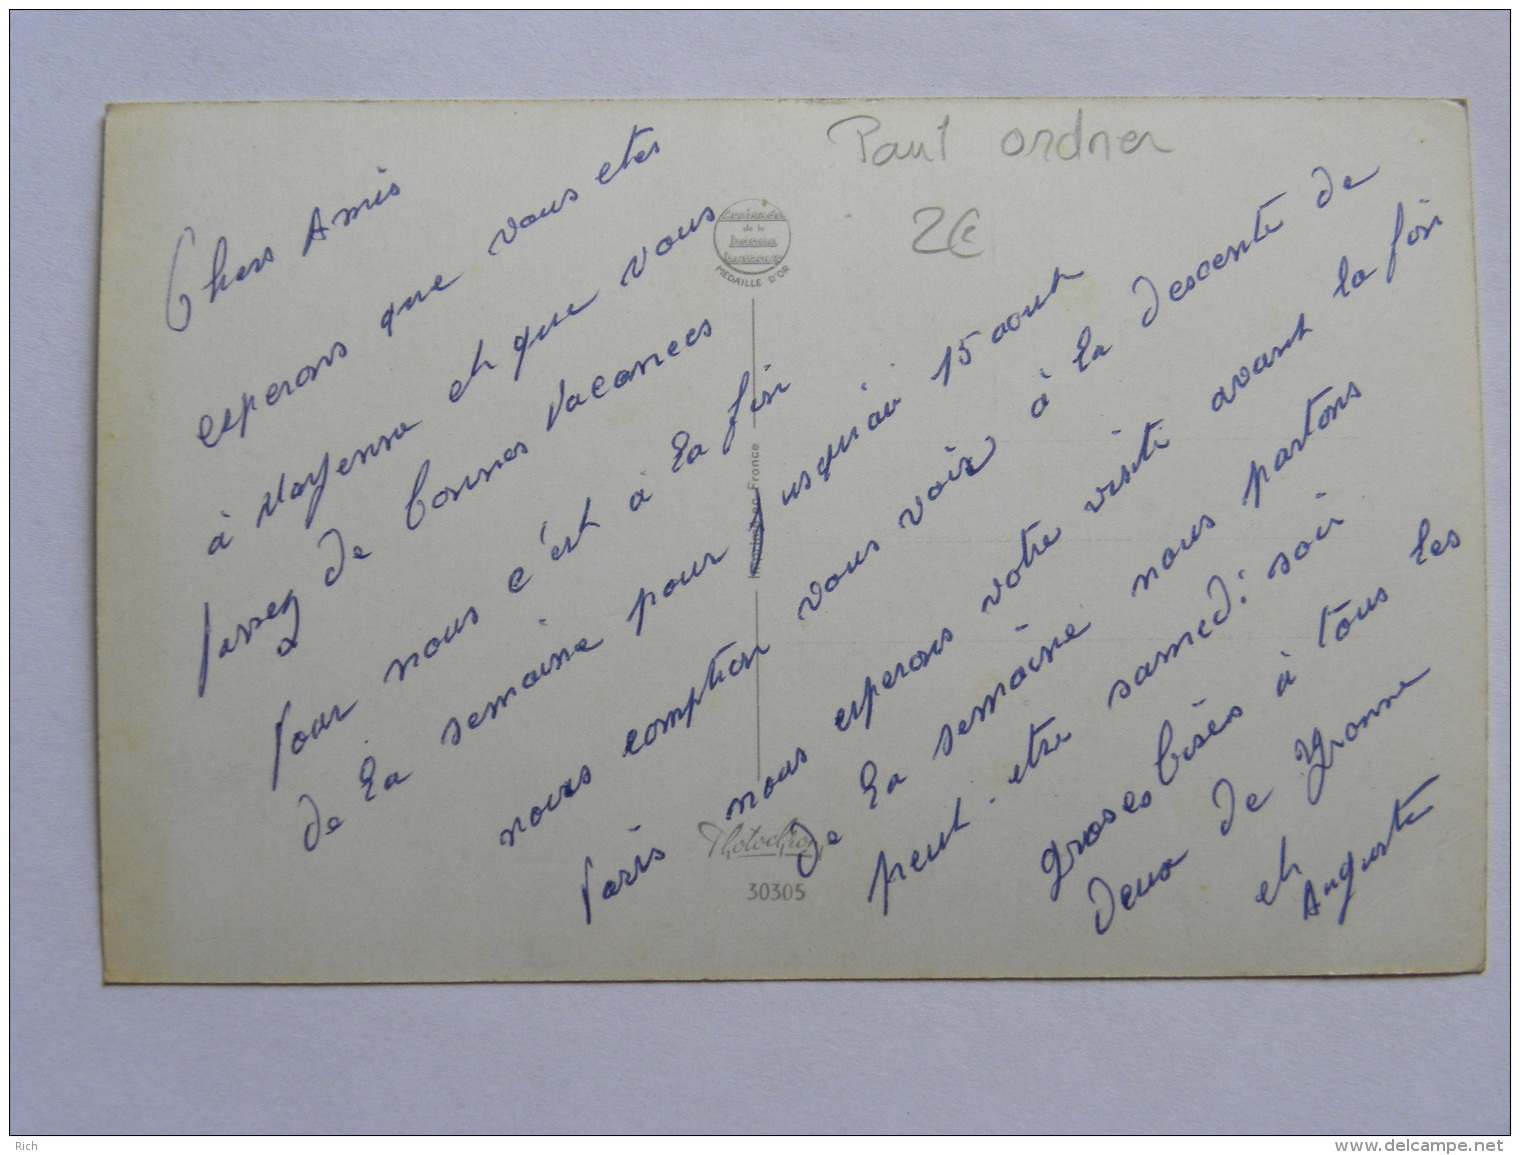 Paul ordner
2€
Chers Amis
esperons que vous etes
à Mayenne et que vous
passez de bonnes vacances
Pour nous c'est à la fin
de la semaine pour jusqu'au 15 aout
nous comption vous voir à la descente de
Paris nous esperons votre visite avant la fin
de la semaine nous partons
peut-etre samedi soir
groses bises à tous les
deux de Yvonne
et
Auguste
MEDAILLE D'OR
France
Photochrom
30305
Rich
www.delcampe.net